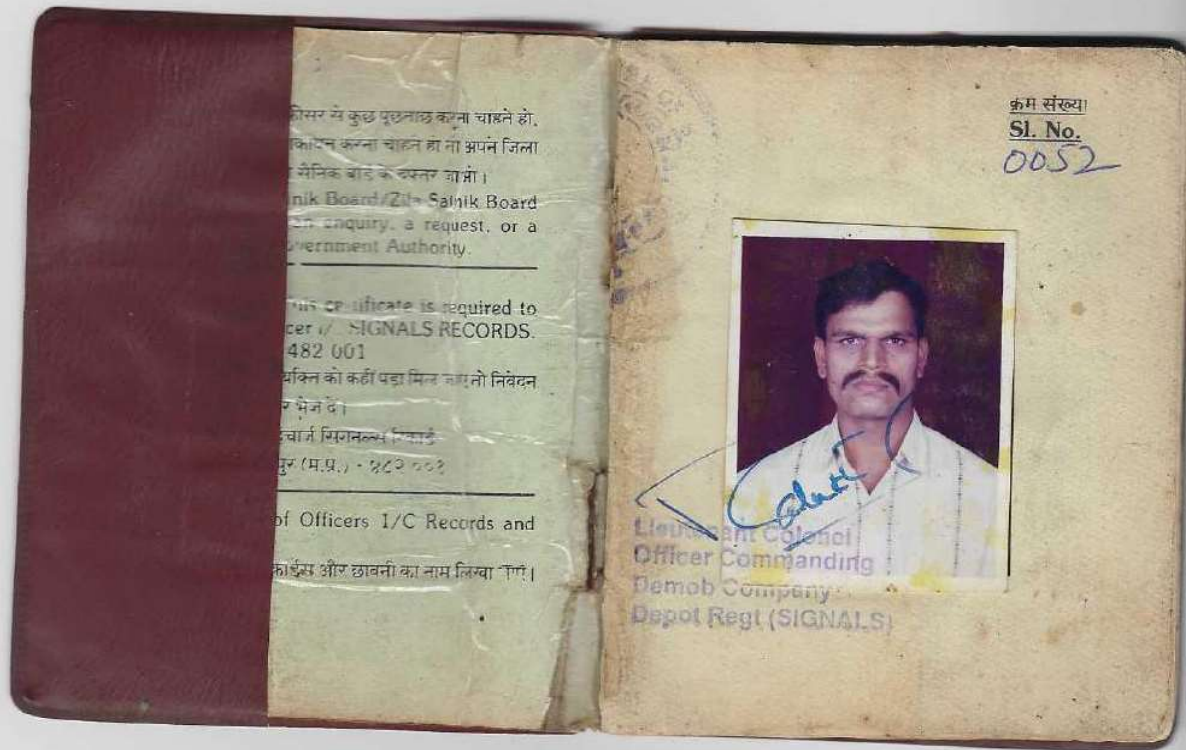 फीसर से कुछ पूछताछ करना चाहते हो,
करना चाहते हो तो अपने जिला
सैनिक बोर्ड के दफ्तर जाओ।
nik Board/Zila Sainik Board
an enquiry, a request, or a
overnment Authority.
his certificate is required to
cer i/ SIGNALS RECORDS.
482 001
को कहीं पड़ा मिल जाए तो निवेदन
र भेज दें।
चार्ज सिगनल्स रिकार्ड
पुर (म.प्र.) - ४८२ ००१
of Officers I/C Records and
और छावनी का नाम लिखा
क्रम संख्या
Sl. No.
0052
Lieutenant Colonel
Officer Commanding
Demob Company
Depot Regt (SIGNALS)